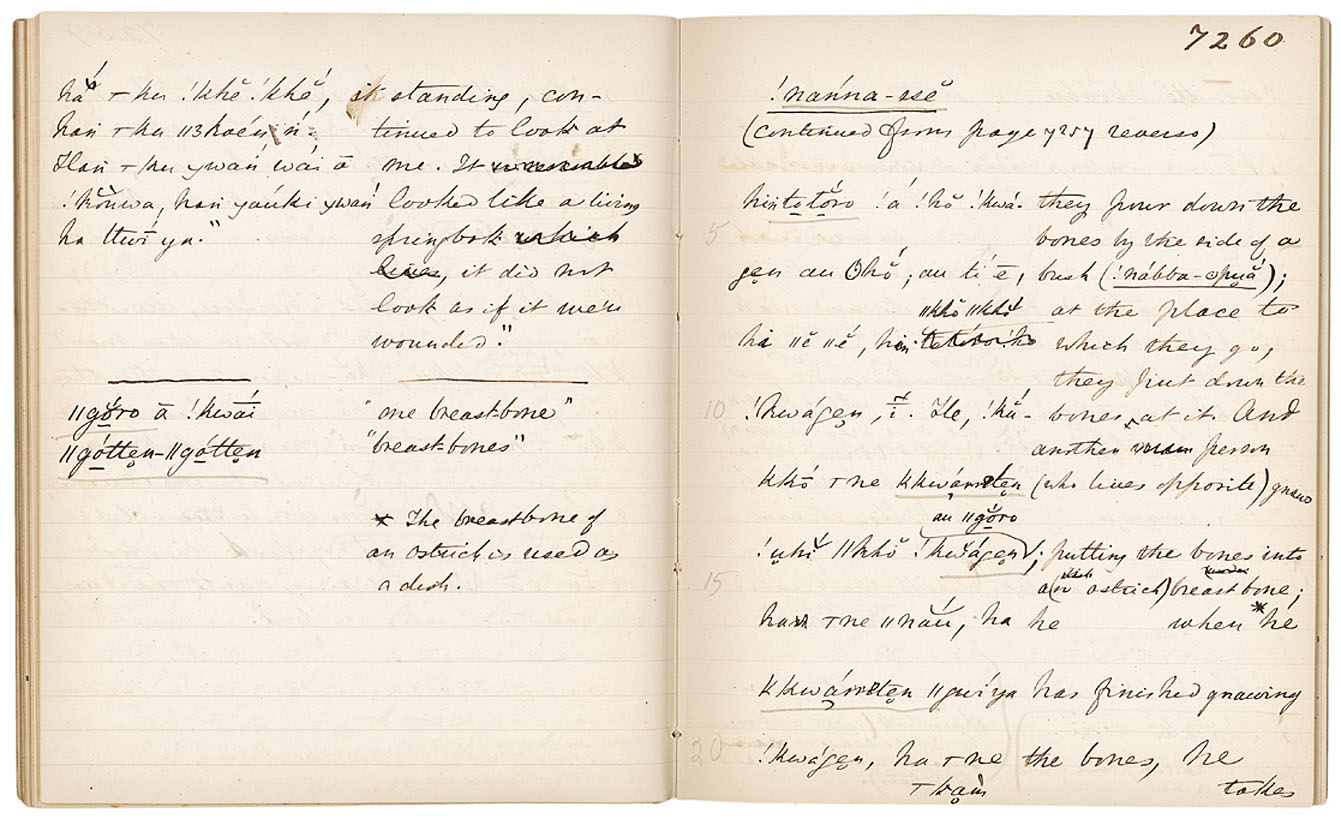 hă ⊤ku !khĕ !khĕ, it standing, con-
han ⊤ku ǁ3kaén ń. tinued to look at
Han ⊤ku ywań wái ā me. It
!kŏuwa, han yaúki ywań looked like a living
ha ttwí ya." springbok which
lives, it did not
look as if it were
wounded."
ǁgŏro ā !kwāi "one breast-bone"
ǁgótten-ǁgótten "breast-bones"
× The breastbone of
an ostrich is used as
a dish.
7260
!nańna-ssĕ
(continued from page 7257 reverso)
hin totŏro !á !hŏ !kwá- they pour down the
5 bones by the side of a
gen au ʘhŏ; au ti ē, bush (!nábba-ʘpuă);
ǁkhŏ ǁkhŏ at the place to
hi ǁĕ ǁĕ, hin which they go,
they put down the
10 !kwágen, ī. He, !kŭ- bones, at it. And
another person
kkó ⊤ne kkwárreten (who lives opposite) gnaws
au ǁgŏro
!uhĭ ǁkhŏ !kwágen; putting the bones into
15 an (ostrich) breastbone;
han ⊤ne ǁnău, ha he when *he
kkwárreten ǁgwíya has finished gnawing
20 !kwágen, ha ⊤ne the bones, he
⊤kam takes